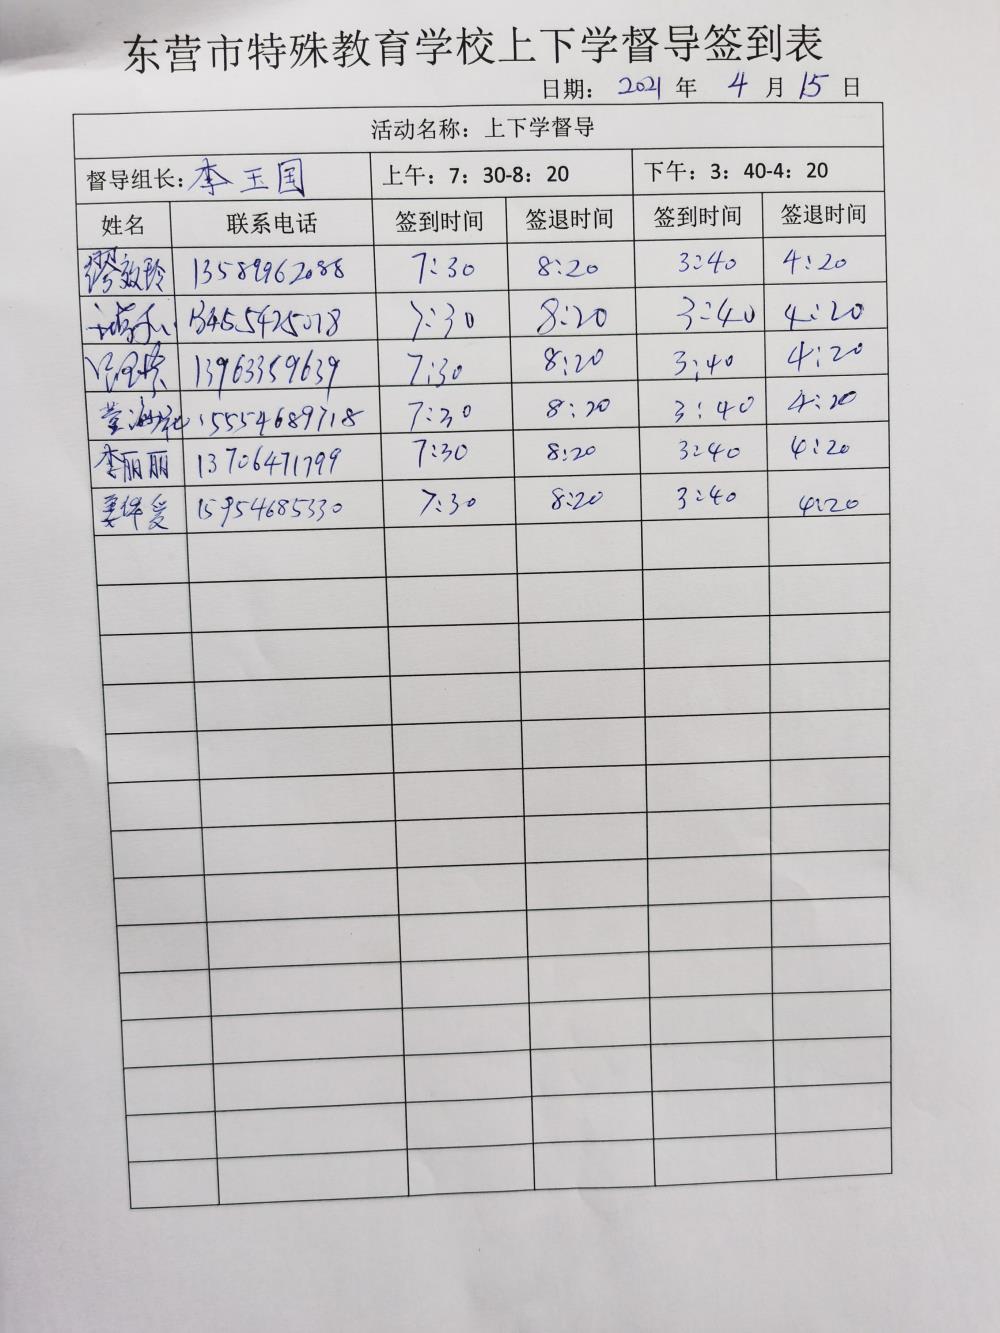 东营市特殊教育学校上下学督导签到表
日期： 2021 年 4 月 15 日
活动名称：上下学督导
督导组长：李玉国 上午：7：30-8：20 下午：3：40-4：20
姓名 联系电话 签到时间 签退时间 签到时间 签退时间
缪效玲 13589962088 7:30 8:20 3:40 4:20
13455425018 7:30 8:20 3:40 4:20
13963359639 7:30 8:20 3:40 4:20
15554689718 7:30 8:20 3:40 4:20
李丽丽 13706471799 7:30 8:20 3:40 4:20
15954685330 7:30 8:20 3:40 4:20